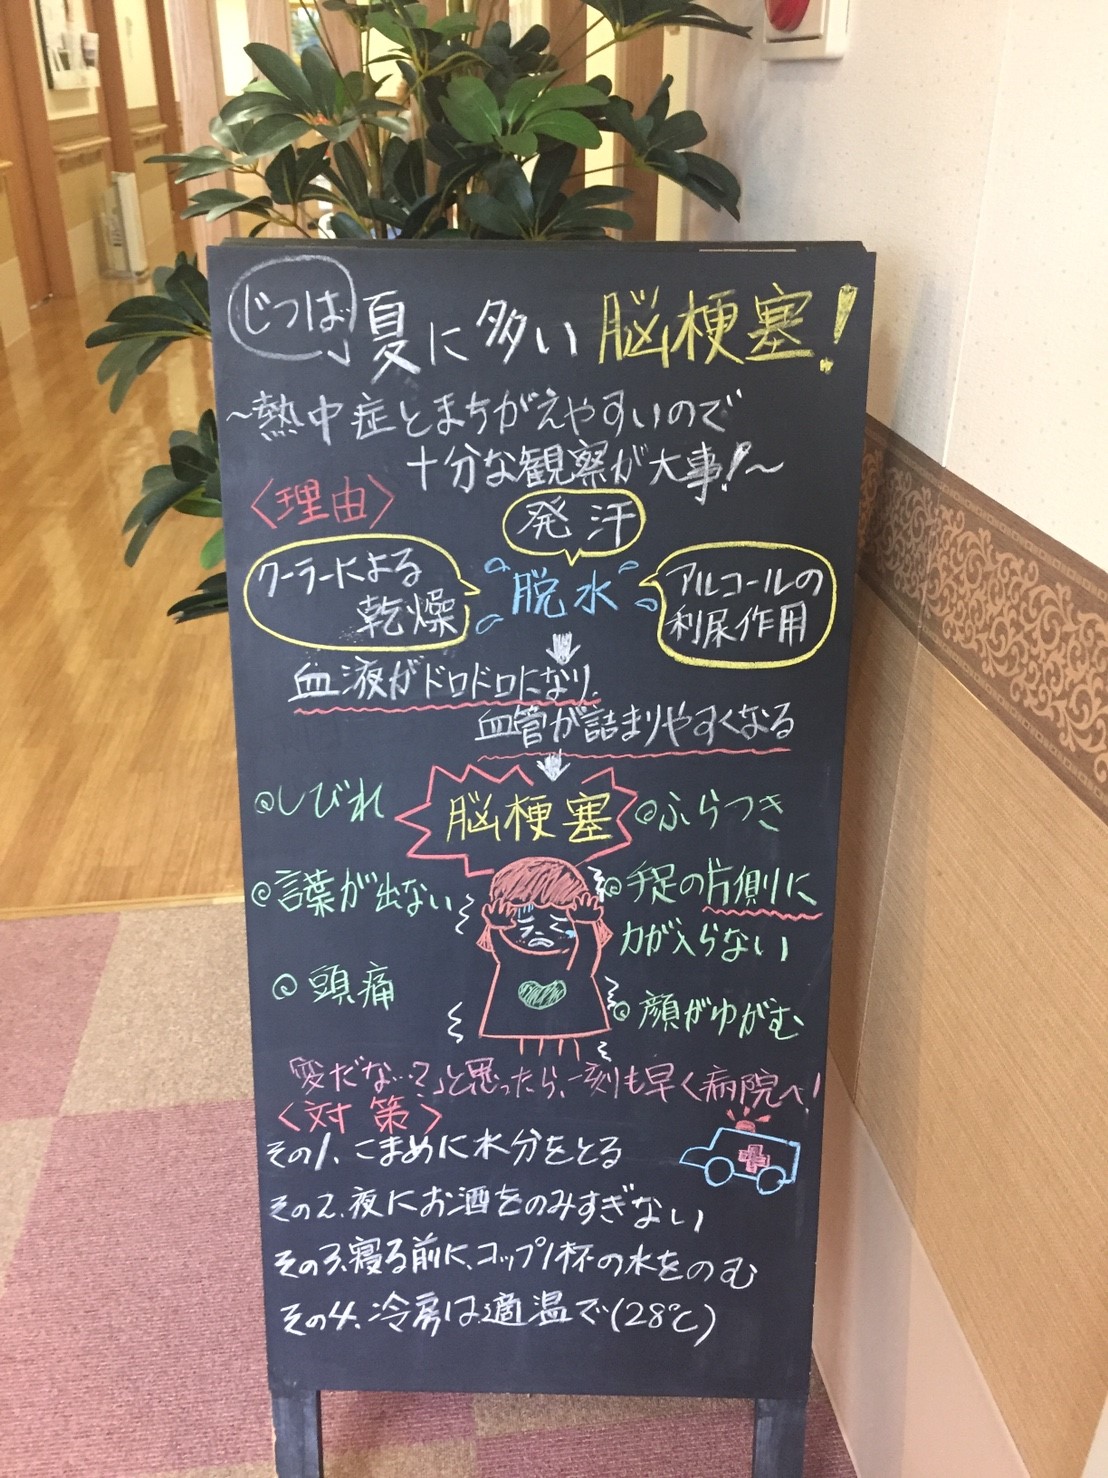 じつは夏に多い脳梗塞!
～熱中症とまちがえやすいので
十分な観察が大事!～
〈理由〉
発汗
クーラーによる
乾燥
脱水
アルコールの
利尿作用
血液がドロドロになり、
血管が詰まりやすくなる
脳梗塞
◎しびれ
◎言葉が出ない
◎頭痛
◎ふらつき
◎手足の片側に
力が入らない
◎顔がゆがむ
変だな…?」と思ったら、一刻も早く病院へ!
〈対策〉
その1、こまめに水分をとる
その2、夜にお酒をのみすぎない
その3、寝る前に、コップ1杯の水をのむ
その4、冷房は適温で(28℃)